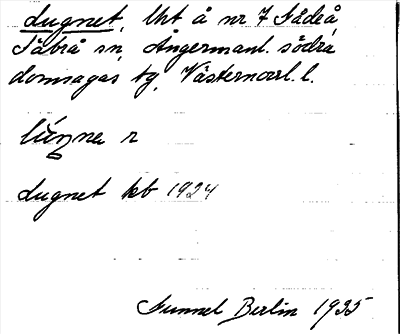 Lugnet, lht å nr 7 Fådeå,
Säbrå sn, Ångermanl. södra
domsagas tg, Västernorrl. l.
lúŋne r
Lugnet kb 1924
Gunnel Berlin 1935